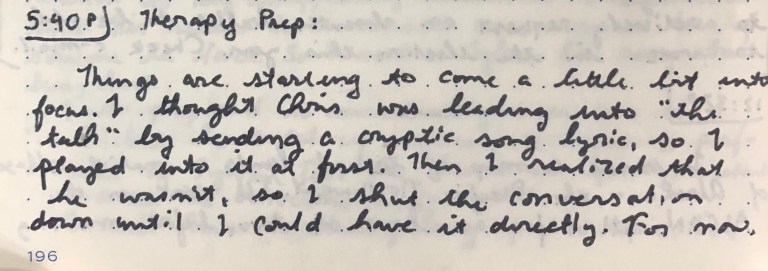 5:40P Therapy Prep:
Things are starting to come a little bit into
focus. I thought Chris was leading into "the
talk" by sending a cryptic song lyric, so I
played into it at first. Then I realized that
he wasn't, so I shut the conversation
down until I could have it directly. For now,
196